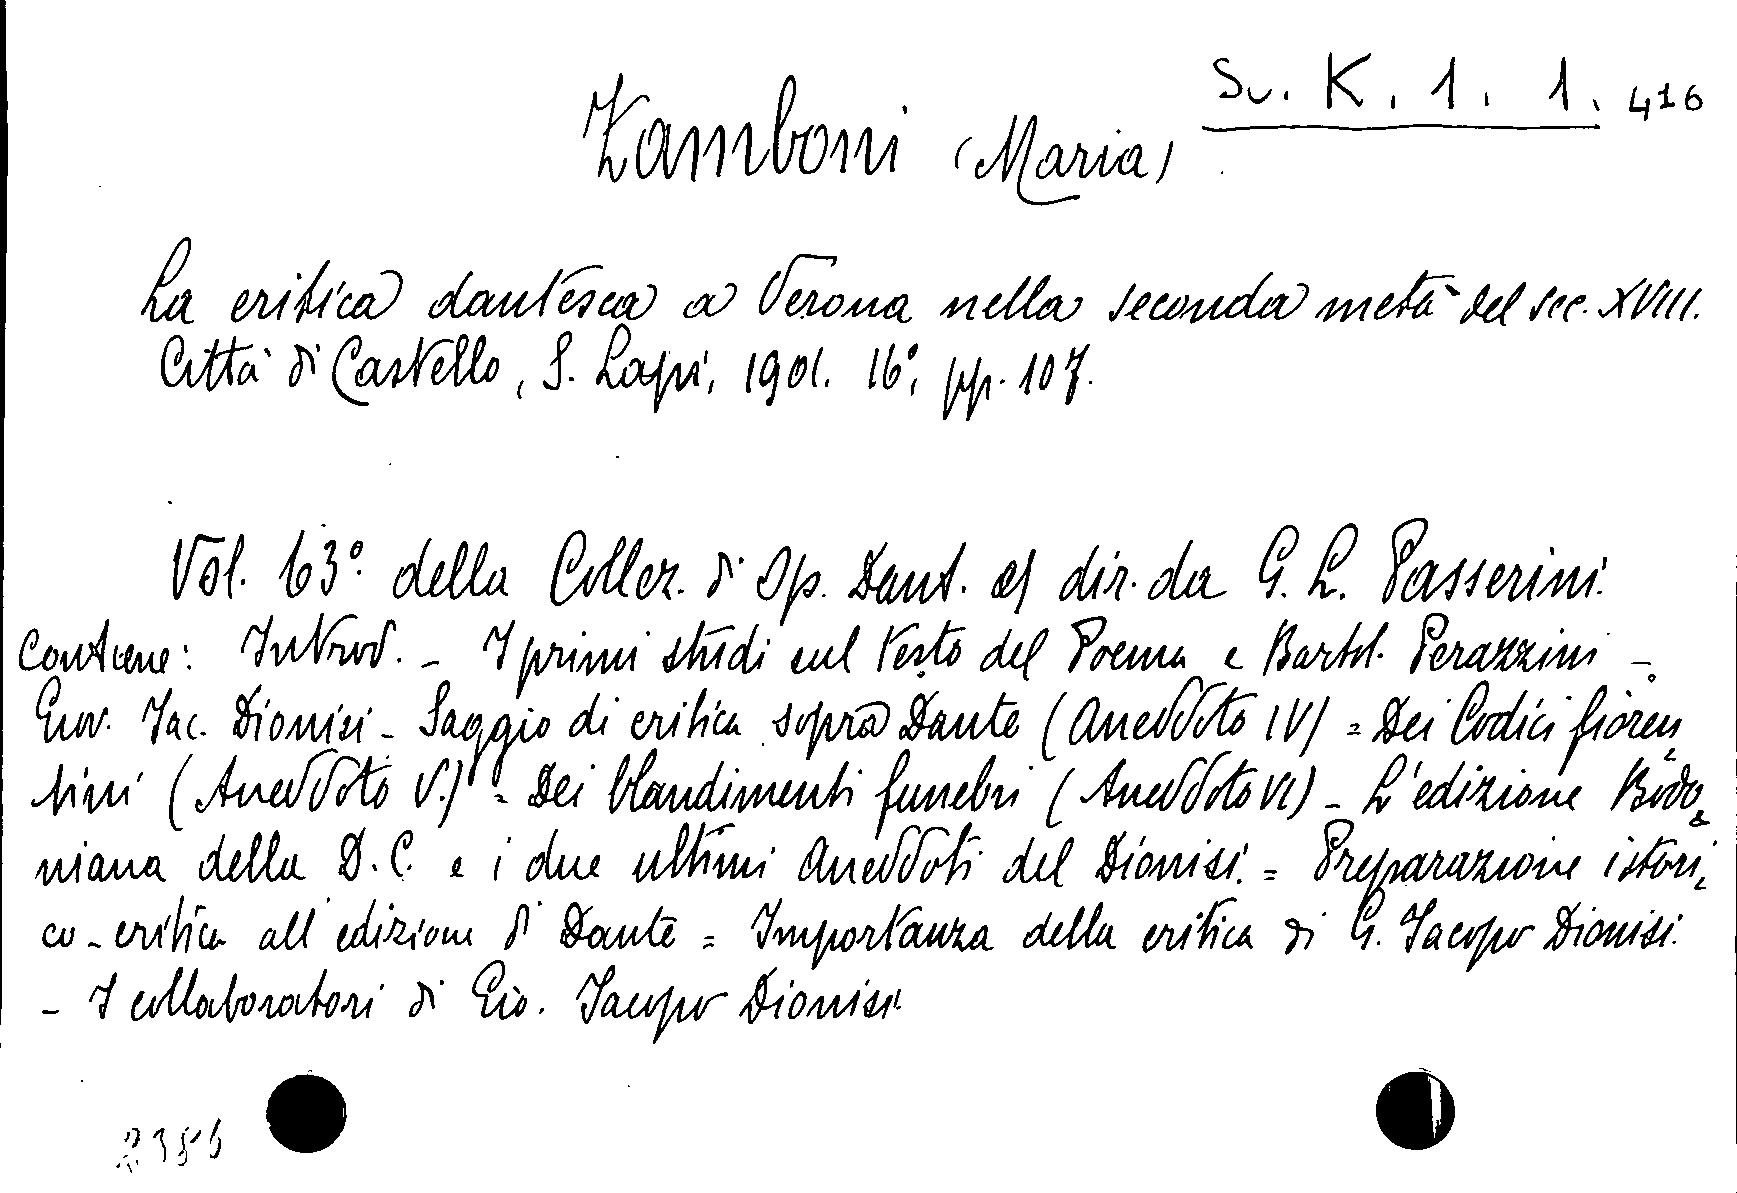 Sv. K. 1. 1. 416
Zamboni (Maria)
La critica dantesca a Verona nella seconda metà del sec. XVIII.
Città di Castello, S. Lapi, 1901. 16°, pp. 107.
Vol. 63° della Collez. di Op. Dant. dir. da G. L. Passerini.
Contiene: Introd. - I primi studi sul testo del Poema e Bartol. Perazzini -
Giov. Jac. Dionisi - Saggio di critica sopra Dante (Aneddoto IV) = Dei Codici fioren
tini (Aneddoto V.) = Dei blandimenti funebri (Aneddoto VI) - L'edizione Bodo
niana della D. C. e i due ultimi Aneddoti del Dionisi. = Preparazione istori
co-critica all'edizione di Dante = Importanza della critica di G. Jacopo Dionisi.
- I collaboratori di Gio. Jacopo Dionisi.